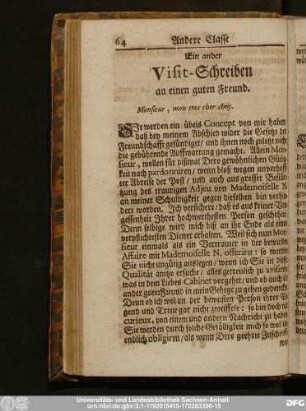 64 Andere Classe
Ein ander
Visit-Schreiben
an einen guten Freund.
Monsieur, mon tres cher Amy.
Sie werden ein übels Concept von mir haben/
daß bey meinem Abschied wider die Gesetze der
Freundschafft gesündiget/ und ihnen noch zuletzt nicht
die gebührende Auffwartung gemacht. Allein Mon-
sieur, wollen für dißmal Dero gewöhnlichen Gütig-
keit nach pardonniren/ wenn bloß wegen unverhoff-
ter Abreise der Post/ und auch aus greiffer Bestür-
tzung des traurigen Adjeu von Mademoiselle N.
an meiner Schuldigkeit gegen dieselben bin verhin-
dert worden. Ich versichere/ daß es aus keiner Ver-
gessenheit Ihrer hochwerthesten Person geschehen.
Denn selbige wird mich biß an ihr Ende als einen
verpflichtesten Diener erhalten. Weil sich nun Mon-
sieur einmals als ein Vertrauter in der bewusten
Affaire mit Mademoiselle N. offeriret: so werden
Sie nicht ungütig auslegen/ wenn ich Sie in dieser
Qualität anitzo ersuche/ alles getreulich zu avisiren
was in dem Liebes-Cabinet vorgehet/ und ob auch
ander guter Freund in mein Gehege zu gehen gedencket.
Denn ob ich wol an der bewusten Person ihrer Tu-
gend und Treue gar nicht zweiffele: so bin doch so
curieux, von einem und andern Nachricht zu haben.
Sie werden durch solche Gefälligkeit mich so wol un-
endlich obligiren/ als wenn Dero geehrte Zuschrifft
Universitäts- und Landesbibliothek Sachsen-Anhalt
urn:nbn:de:gbv:3:1-1192015415-172283396-15
DFG